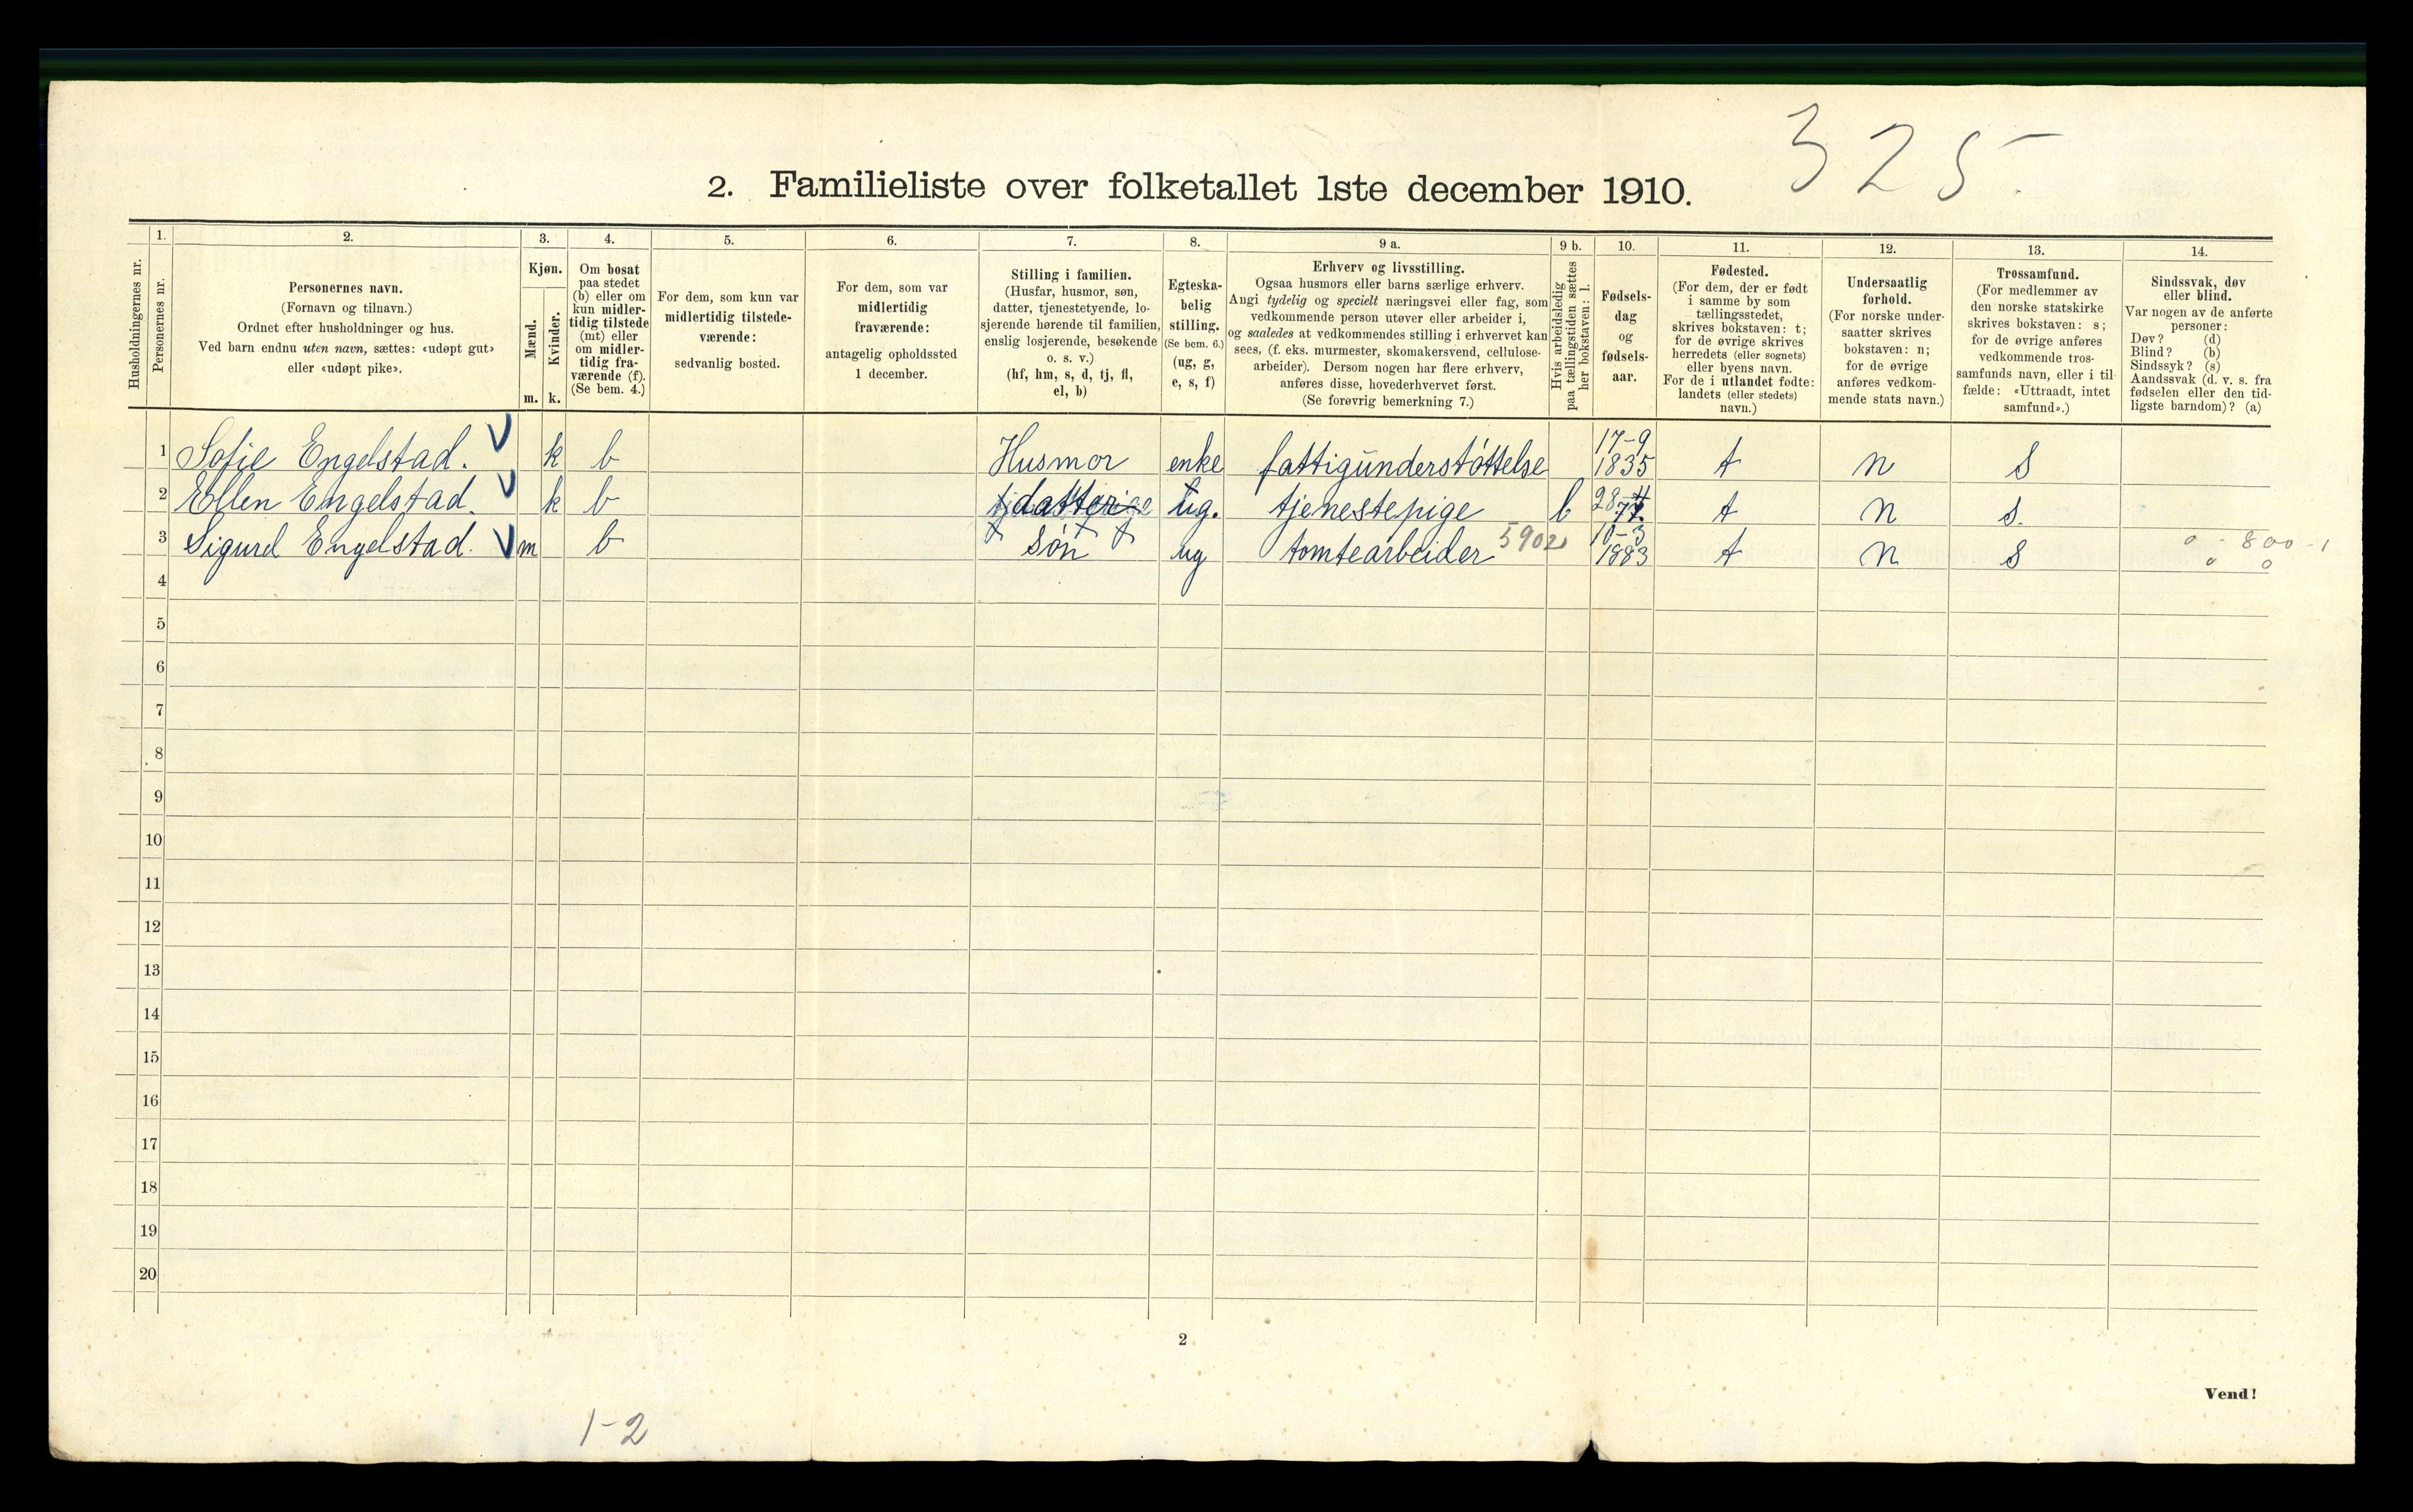 325
2. Familieliste over folketallet 1ste december 1910.
Husholdningernes nr.
1.
Personernes nr.
2.
Personernes navn.
(Fornavn og tilnavn.)
Ordnet efter husholdninger og hus.
Ved barn endnu uten navn, sættes: «udøpt gut»
eller «udøpt pike».
3.
Kjøn.
Mænd.
Kvinder.
m. k.
4.
Om bosat
paa stedet
(b) eller om
kun midler-
tidig tilstede
(mt) eller
om midler-
tidig fra-
værende (f).
(Se bem. 4.)
5.
For dem, som kun var
midlertidig tilstede-
værende:
sedvanlig bosted.
6.
For dem, som var
midlertidig
fraværende:
antagelig opholdssted
1 december.
7.
Stilling i familien.
(Husfar, husmor, søn,
datter, tjenestetyende, lo-
sjerende hørende til familien,
enslig losjerende, besøkende
o. s. v.)
(hf, hm, s, d, tj, fl,
el, b)
8.
Egteska-
belig
stilling.
(Se bem. 6.)
(ug, g,
e, s, f)
9 a.
Erhverv og livsstilling.
Ogsaa husmors eller barns særlige erhverv.
Angi tydelig og specielt næringsvei eller fag, som
vedkommende person utøver eller arbeider i,
og saaledes at vedkommendes stilling i erhvervet kan
sees, (f. eks. murmester, skomakersvend, cellulose-
arbeider). Dersom nogen har flere erhverv,
anføres disse, hovederhvervet først.
(Se forøvrig bemerkning 7.)
9 b.
Hvis arbeidsledig
paa tællingstiden sættes
her bokstaven: l.
10.
Fødsels-
dag
og
fødsels-
aar.
11.
Fødested.
(For dem, der er født
i samme by som
tællingsstedet,
skrives bokstaven: t;
for de øvrige skrives
herredets (eller sognets)
eller byens navn.
For de i utlandet fødte:
landets (eller stedets)
navn.)
12.
Undersaatlig
forhold.
(For norske under-
saatter skrives
bokstaven: n;
for de øvrige
anføres vedkom-
mende stats navn.)
13.
Trossamfund.
(For medlemmer av
den norske statskirke
skrives bokstaven: s;
for de øvrige anføres
vedkommende tros-
samfunds navn, eller i til-
fælde: «Uttraadt, intet
samfund».)
14.
Sindssvak, døv
eller blind.
Var nogen av de anførte
personer:
Døv? (d)
Blind? (b)
Sindssyk? (s)
Aandssvak (d. v. s. fra
fødselen eller den tid-
ligste barndom)? (a)
1 Sofie Engelstad. k b Husmor enke fattigunderstøttelse 17-9 1835 t n s
2 Ellen Engelstad. k b datter ug. tjenestepige l t n s.
3 Sigurd Engelstad. m b søn ug tomtearbeider 5902 10-3 1883 t n s 800-1
4
5
6
7
8
9
10
11
12
13
14
15
16
17
18
19
20
2
Vend!
1-2